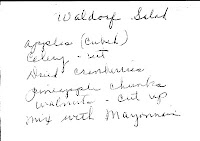 Waldorf Salad
Apples (cubed)
Celery - cut
Dried cranberries
pineapple chunks
walnuts - cut up
mix with Mayonnaise